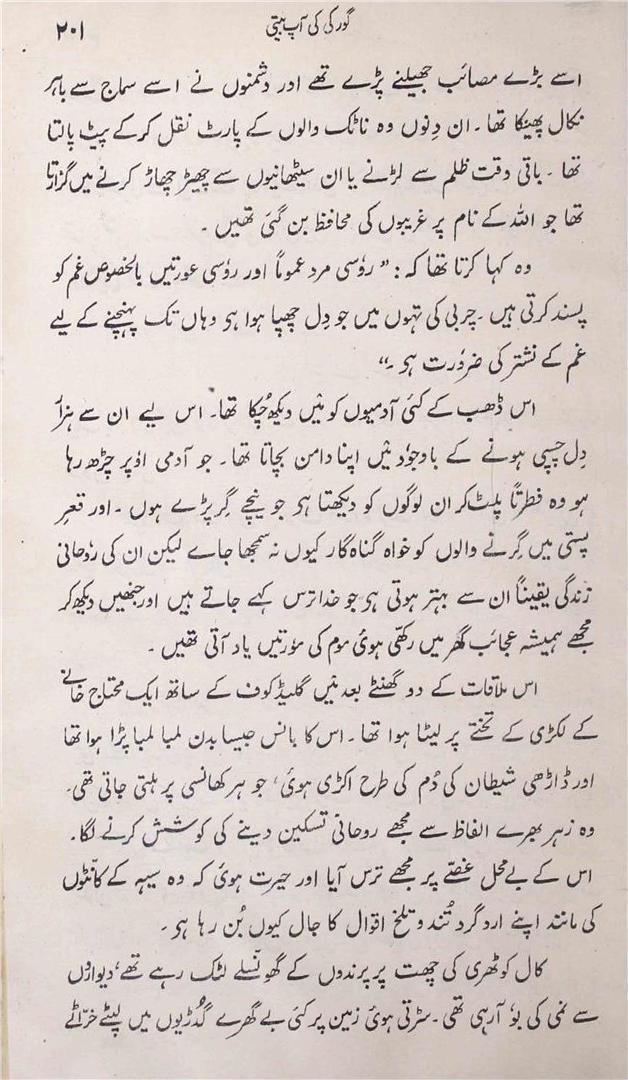 گورکی کی آپ بیتی
۲۰۱
اسے بڑے مصائب جھیلنے پڑے تھے اور دشمنوں نے اسے سماج سے باہر
نکال پھینکا تھا ۔ ان دِنوں وہ ناٹک والوں کے پارٹ نقل کرکے پیٹ پالتا
تھا ۔ باقی وقت ظلم سے لڑنے یا ان سیٹھانیوں سے چھیڑ چھاڑ کرنے میں گزارتا
تھا جو اللہ کے نام پر غریبوں کی محافظ بن گئی تھیں ۔
وہ کہا کرتا تھا کہ : ” روٗسی مرد عموماً اور روٗسی عورتیں بالخصوص غم کو
پسند کرتی ہیں ۔ چربی کی تہوں میں جو دِل چھپا ہوا ہی وہاں تک پہنچنے کے لیے
غم کے نشتر کی ضرورت ہی ۔“
اس ڈھب کے کئی آدمیوں کو مَیں دیکھ چُکا تھا۔ اس لیے ان سے ہزار
دِل چسپی ہونے کے باوجوٗد مَیں اپنا دامن بچاتا تھا ۔ جو آدمی اوٗپر چڑھ رہا
ہو وہ فطرتاً پلٹ کر ان لوگوں کو دیکھتا ہی جو نیچے گِر پڑے ہوں ۔ اور قعرِ
پستی میں گِرنے والوں کو خواہ گناہ گار کیوں نہ سمجھا جائے لیکن ان کی روٗحانی
زندگی یقیناً ان سے بہتر ہوتی ہی جو خدا ترس کہے جاتے ہیں اور جنھیں دیکھ کر
مجھے ہمیشہ عجائب گھر میں رکھی ہوئی موم کی موٗرتیں یاد آتی تھیں ۔
اس ملاقات کے دو گھنٹے بعد مَیں گلیڈکوف کے ساتھ ایک محتاج خانے
کے لکڑی کے تختے پر لیٹا ہوا تھا ۔ اس کا بانس جیسا بدن لمبا لمبا پڑا ہوا تھا
اور ڈاڑھی شیطان کی دُم کی طرح اکڑی ہوئی ، جو ہر کھانسی پر ہلتی جاتی تھی ۔
وہ زہر بھرے الفاظ سے مجھے روحانی تسکین دینے کی کوشش کرنے لگا ۔
اس کے بے محل غصّے پر مجھے ترس آیا اور حیرت ہوئی کہ وہ سیہہ کے کانٹوں
کی مانند اپنے ارد گرد تُند و تلخ اقوال کا جال کیوں بُن رہا ہی ۔
کال کوٹھری کی چھت پر پرندوں کے گھونسلے لٹک رہے تھے ، دیواروٗں
سے نمی کی بوٗ آ رہی تھی ۔ سڑتی ہوئی زمین پر کئی بے گھرے گُدڑیوں میں لپٹے خرّاٹے